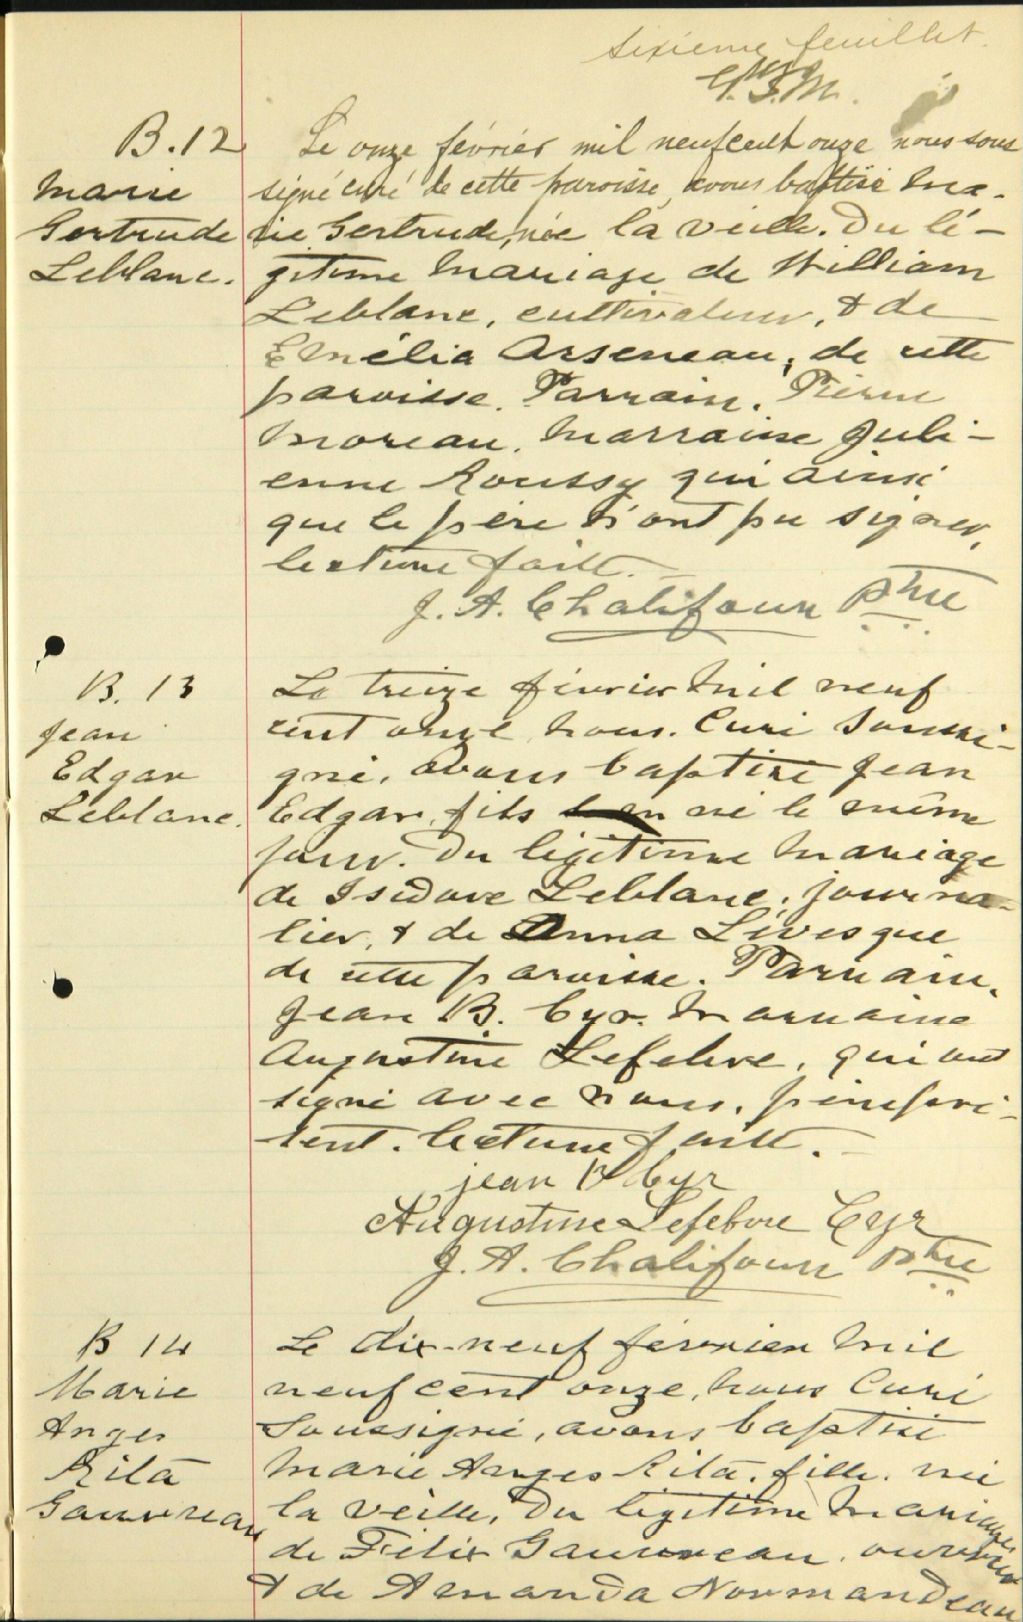 sixième feuillet.
B.12
Marie
Gertrude
Leblanc.
Le onze février mil neufcent onze nous sous
signé curé de cette paroisse, avons baptisé Ma-
rie Gertrude, née la veille. Du lé-
gitime mariage de William
Leblanc, cultivateur, & de
Emélia Arseneau, de cette
paroisse. Parrain. Pierre
Moreau. Marraine Juli-
enne Roussy qui ainsi
que le père n'ont pu signer,
lecture faite.
J. A. Chalifour Ptre
B. 13
Jean
Edgar
Leblanc.
Le treize février mil neuf
cent onze nous. Curé soussi-
gné, avons baptisé Jean
Edgar, fils né le même
jour. Du légitime mariage
de Isidore Leblanc, journa-
lier, & de Anna Lévesque
de cette paroisse. Parrain,
Jean B. Cyr. Marraine
Augustine Lefebvre, qui ont
signé avec nous,
lecture faite.
jean B Cyr
Augustine Lefebvre Cyr
J. A. Chalifour Ptre
B 14
Marie
Anges
Rita
Gauvreau
Le dix-neuf février mil
neuf cent onze, nous Curé
soussigné, avons baptisé
Marie Anges Rita. fille. née
la veille, Du légitime mariage
de Félix Gauvreau, ouvrier
& de Amanda Normandeau